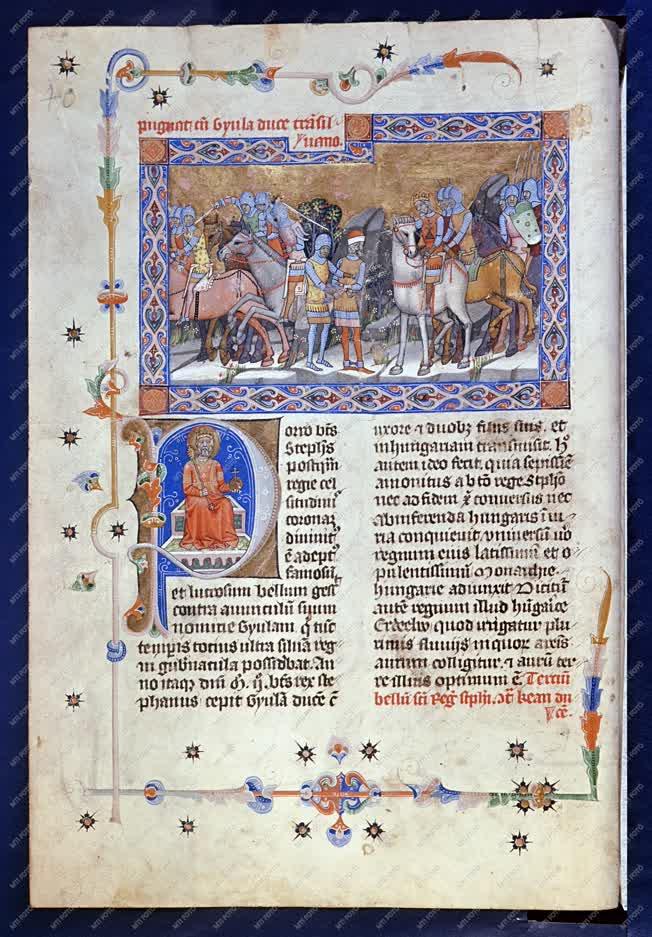 pugnat cū Gyula duce trāsil
uano.
orro bt̄s
Stephs
postqm̄
regie cel
situdini
coronaʒ
diuinit᷒
ē adept᷒
famosū
et lucrosum bellum gess
contra auunculū suum
nomine Gyulam. q̄ tūc
temp̄is totius ultra siluā reg
ni gub̄nacula possidebat. An
no itaqʒ dn̄i M. ij. bt̄s rex ste
phanus cepit Gyulā ducē ē
uxore ⁊ duobʒ filijs suis. et
in hungariam transmisit. h᷒
autem ideo fecit. quia sepissiē
amonitus a bt̄o rege Stph̄o
nec ad fidem x̄ conuersus nec
ab inferenda hungaris iniu
ria conquieuit. uniuersū u᷒o
regnum eius latissimū et o
pulentissimū monarchie
hungarie adiunxit. Dicitur
autē regnum illud hūgaice
Erdeelw. quod irrigatur plu
rimis fluuijs in quoʒ areis
aurum colligitur. ⁊ aurū ter
re illius optimum ē. Terciū
bellū sc̄i Reg᷒ stph̄i. 9t᷒ kean du
cē.
MTI FOTÓ